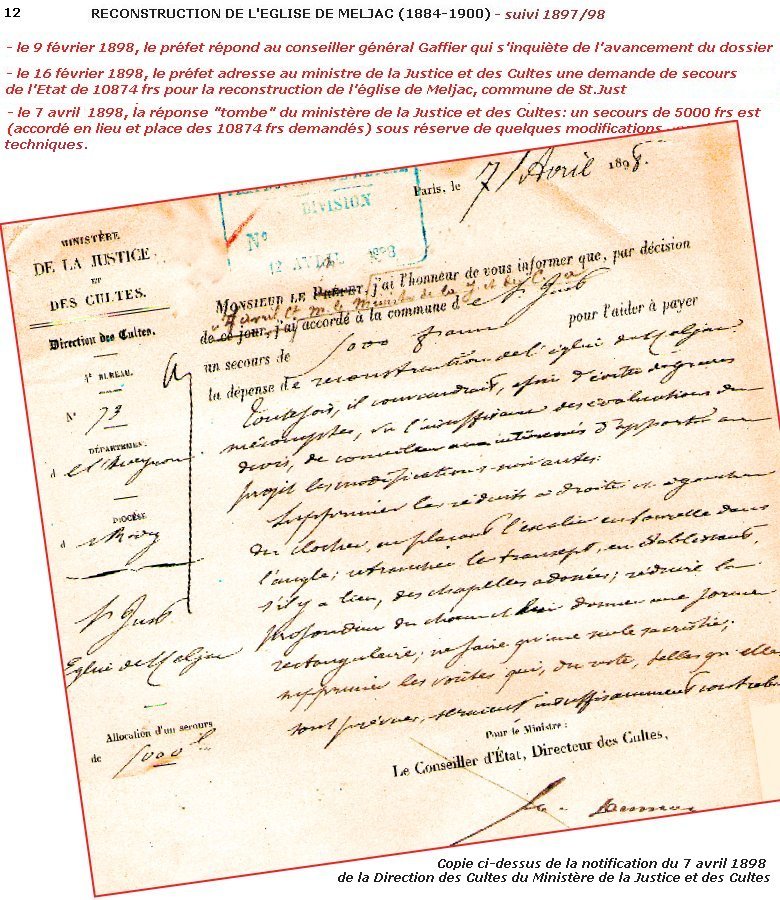 12 RECONSTRUCTION DE L'EGLISE DE MELJAC (1884-1900) - suivi 1897/98
- le 9 février 1898, le préfet répond au conseiller général Gaffier qui s'inquiète de l'avancement du dossier
- le 16 février 1898, le préfet adresse au ministre de la Justice et des Cultes une demande de secours
de l'Etat de 10874 frs pour la reconstruction de l'église de Meljac, commune de St.Just
- le 7 avril 1898, la réponse "tombe" du ministère de la Justice et des Cultes: un secours de 5000 frs est
(accordé en lieu et place des 10874 frs demandés) sous réserve de quelques modifications
techniques.
Paris, le 7 Avril 1898.
DIVISION
N°
12 AVRIL 1898
MINISTÈRE
DE LA JUSTICE
ET
DES CULTES.
Direction des Cultes.
4e BUREAU.
N° 73
DÉPARTEMENT
d e l'Aveyron
DIOCÈSE
d e Rodez
St Just
Eglise de Meljac
Allocation d'un secours
de 5000 f
MONSIEUR LE PRÉFET, j'ai l'honneur de vous informer que, par décision
du 7 avril Ct M. le Ministre de la J. et des C. a
de ce jour, j'ai accordé à la commune d e St Just
un secours de 5000 francs pour l'aider à payer
la dépense de reconstruction de l'église de Meljac.
Toutefois, il conviendrait, afin d'éviter de graves
mécomptes, vu l'insuffisance des évaluations du
devis, de conseiller aux intéressés d'apporter au
projet les modifications suivantes:
Supprimer les réduits à droite et à gauche
du clocher, en plaçant l'escalier en tourelle dans
l'angle; retrancher le transept, en établissant,
s'il y a lieu, des chapelles adossées; réduire la
profondeur du chœur et lui donner une forme
rectangulaire; ne faire qu'une seule sacristie;
supprimer les voûtes qui, du reste, telles qu'elles
sont prévues, seraient insuffisamment contrebutées
Pour le Ministre:
Le Conseiller d'État, Directeur des Cultes,
Copie ci-dessus de la notification du 7 avril 1898
de la Direction des Cultes du Ministère de la Justice et des Cultes